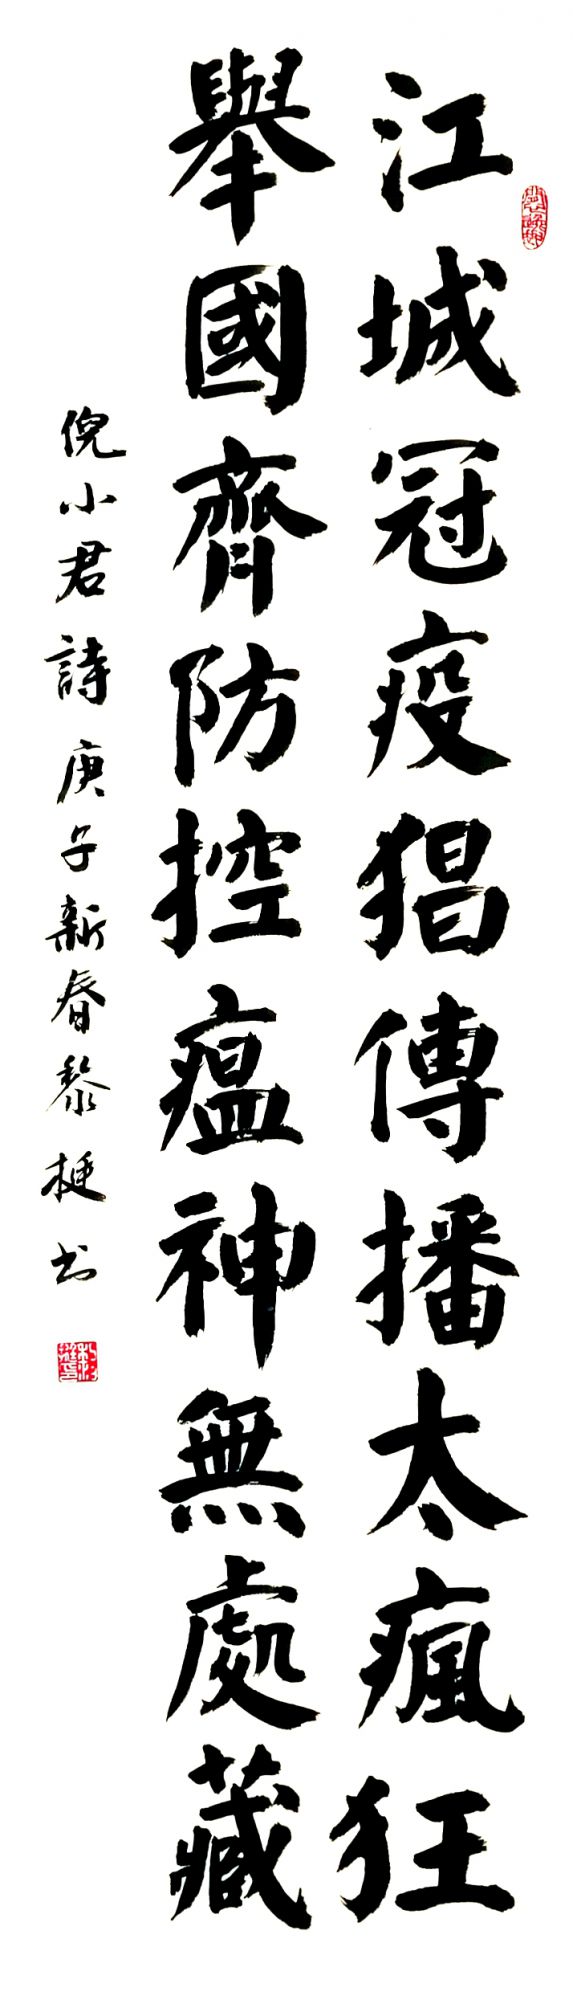 江城冠疫猖傳播太瘋狂
舉國齊防控瘟神無處藏
倪小君詩庚子新春黎梃书